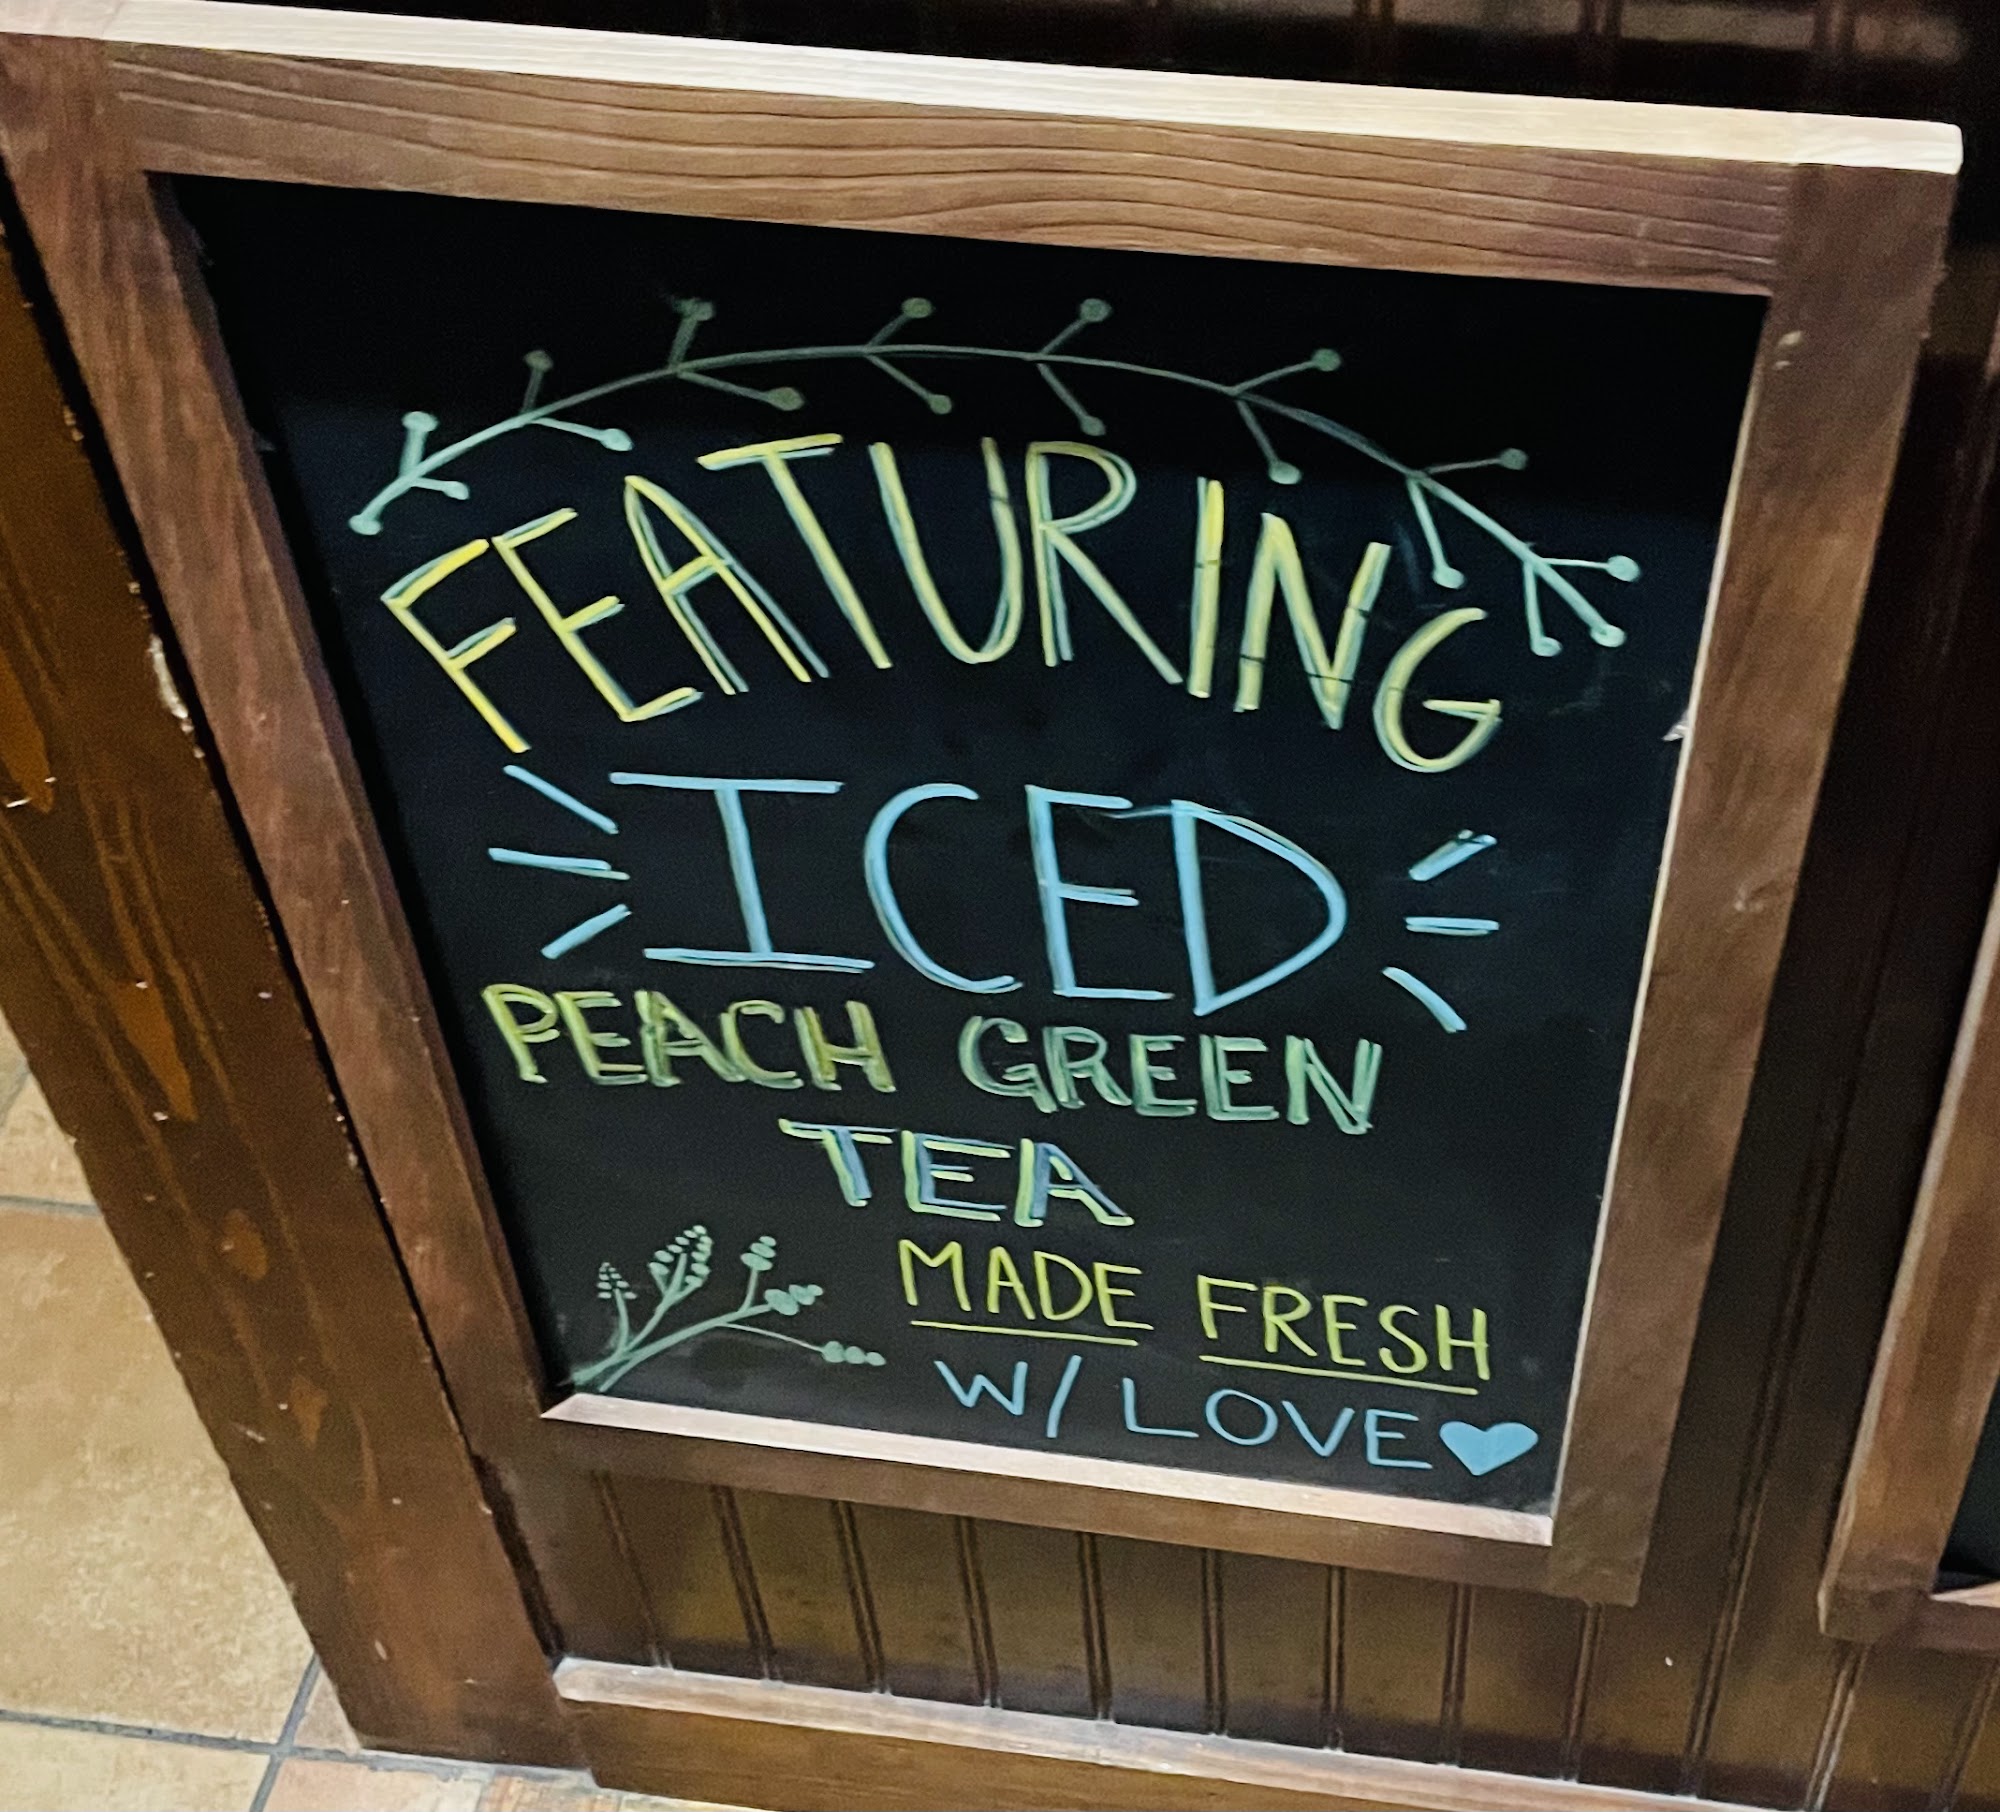 FEATURING
ICED
PEACH GREEN
TEA
MADE FRESH
W/ LOVE